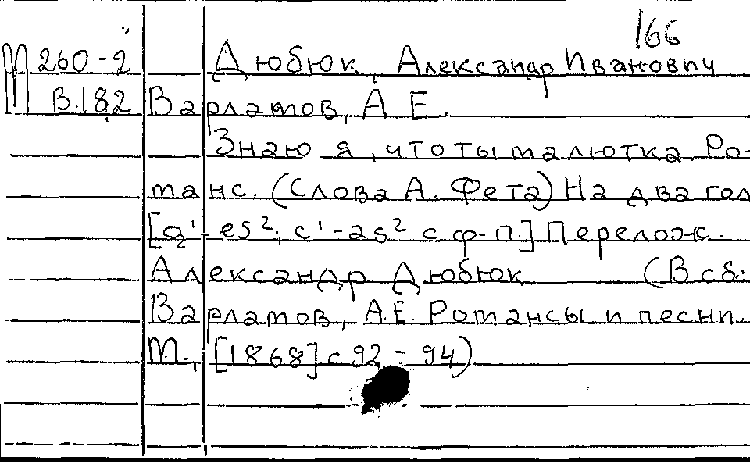 166
М 260-2 Дюбюк, Александр Иванович
В.182 Варламов, А.Е.
Знаю я, что ты малютка Ро-
манс. (Слова А. Фета) На два гол
[g¹-es²; c¹-as² с ф-п] Перелож.
Александр Дюбюк (В сб:
Варламов, А.Е. Романсы и песни.
М., [1868] с 92-94)